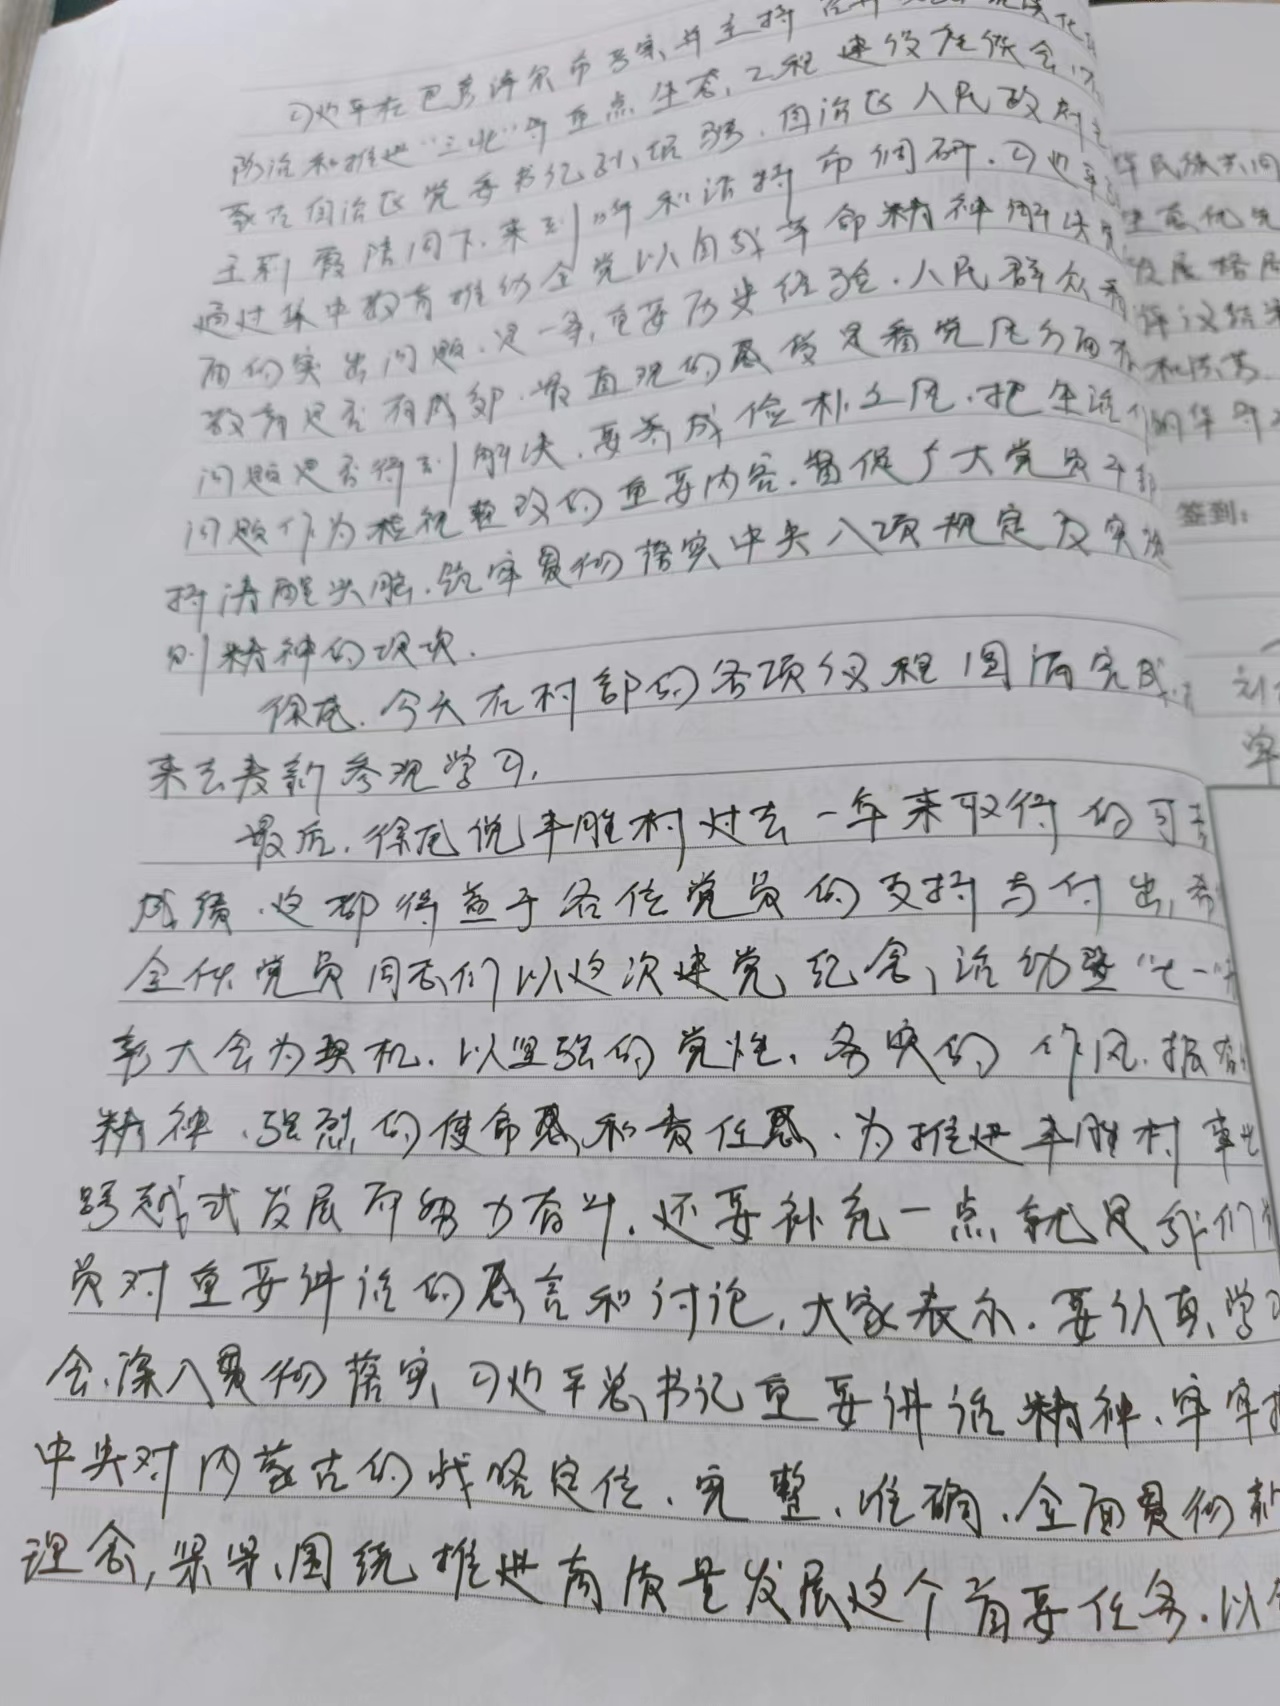 习近平在巴彦淖尔市考察并主持召开
防治和推进“三北”等重点生态工程建设座谈会
蒙古自治区党委书记孙绍骋、自治区人民政府
王莉霞陪同下，来到呼和浩特市调研。习近平
通过集中教育推动全党以自我革命精神解决
面的突出问题，是一条重要历史经验。人民群众看
教育是否有成效，最直观的感受是看党风方面
问题是否得到解决，要养成俭朴之风，把生活
问题作为检视整改的重要内容，督促广大党员干部
持清醒头脑，筑牢贯彻落实中央八项规定及实施
则精神的
徐苑，今天在村部的各项仪程圆满完成，
来去表新参观学习，
最后，徐苑说丰胜村过去一年来取得的可喜
成绩，这都得益于各位党员的支持与付出，希
全体党员同志们以这次建党纪念活动暨“七一”
彰大会为契机，以坚强的党性、务实的作风、振奋
精神、强烈的使命感和责任感，为推进丰胜村
跨越式发展而努力奋斗，还要补充一点就是我们
员对重要讲话的感言和讨论，大家表示，要认真学习
会、深入贯彻落实习近平总书记重要讲话精神，牢牢
中央对内蒙古的战略定位，完整、准确、全面贯彻新
理念，紧紧围绕推进高质量发展这个首要任务，以
华民族共同
生态优先
发展格局
评议结
签到：